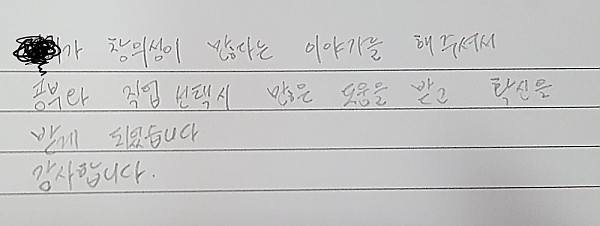 가 창의성이 많다는 이야기를 해주셔서
공부와 직업 선택시 많은 도움을 받고 확신을
받게 되었습니다
감사합니다.